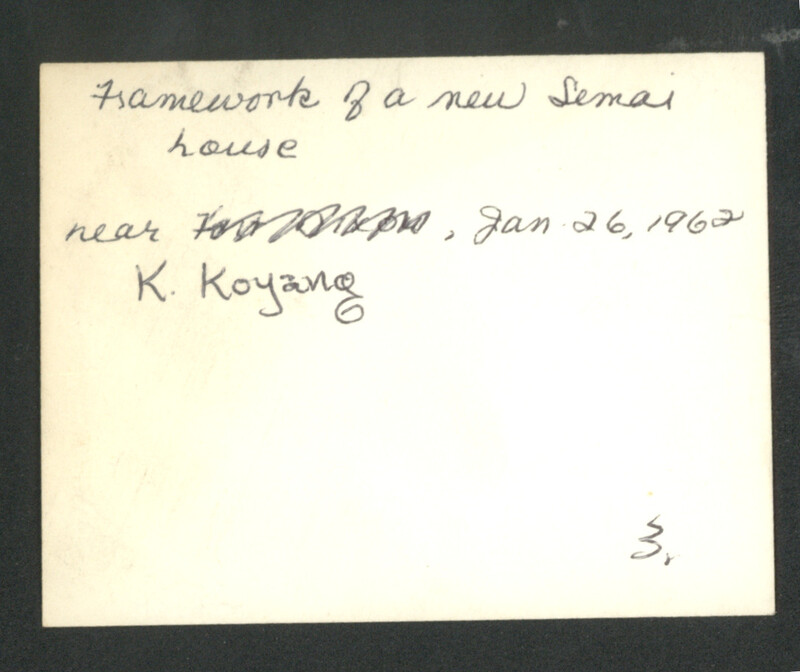 Framework of a new Semai
house
near , Jan 26, 1962
K. Koyang
3.